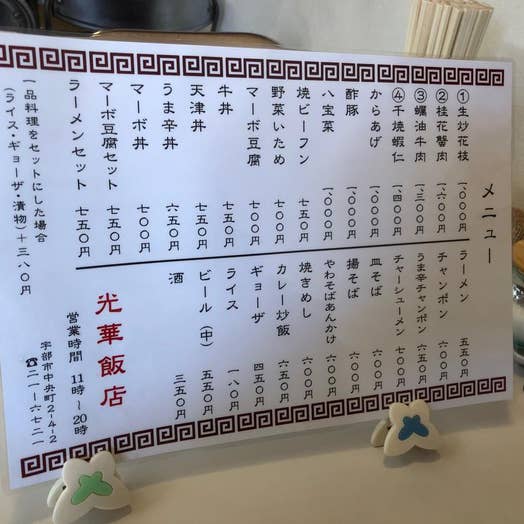 メニュー
①生炒花枝 一、〇〇〇円
②桂花蟹肉 一、六〇〇円
③蠣油牛肉 一、三〇〇円
④干焼蝦仁 一、四〇〇円
からあげ 一、〇〇〇円
酢豚 一、〇〇〇円
八宝菜 一、〇〇〇円
焼ビーフン 七五〇円
野菜いため 七〇〇円
マーボ豆腐 七〇〇円
牛丼 七五〇円
天津丼 七五〇円
うま辛丼 六五〇円
マーボ丼 七〇〇円
マーボ豆腐セット 七五〇円
ラーメンセット 七五〇円
一品料理をセットにした場合
（ライス・ギョーザ・漬物）＋三八〇円
ラーメン 五五〇円
チャンポン 六〇〇円
うま辛チャンポン 六五〇円
チャーシューメン 七〇〇円
皿そば 六〇〇円
揚そば 六〇〇円
やわそばあんかけ 六〇〇円
焼きめし 六〇〇円
カレー炒飯 六五〇円
ギョーザ 四五〇円
ライス 一八〇円
ビール（中） 五五〇円
酒 三五〇円
光華飯店
営業時間 11時～20時
宇部市中央町2-4-2
☎二一-六七二一